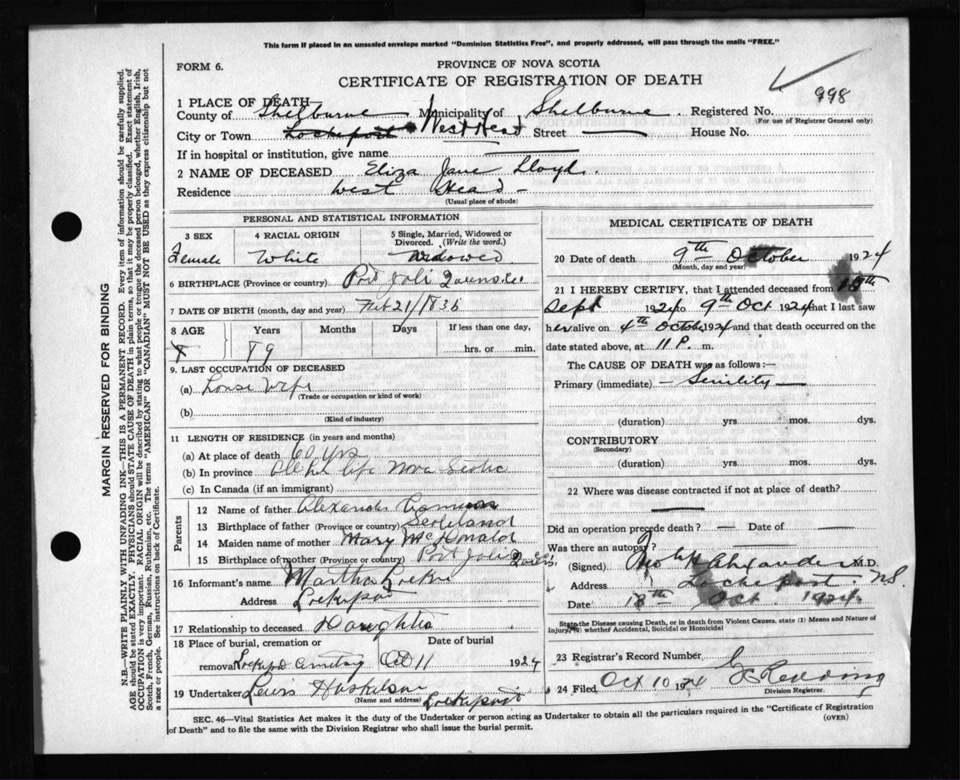 This form if placed in an unsealed envelope marked "Dominion Statistics Free", and properly addressed, will pass through the mails "FREE."
FORM 6.
PROVINCE OF NOVA SCOTIA
CERTIFICATE OF REGISTRATION OF DEATH
998
1 PLACE OF DEATH
County of Shelburne Municipality of Shelburne Registered No.
(For use of Registrar General only)
City or Town Lockeport West Head Street House No.
If in hospital or institution, give name
2 NAME OF DECEASED Eliza Jane Lloyd.
Residence West Head -
(Usual place of abode)
PERSONAL AND STATISTICAL INFORMATION
3 SEX 4 RACIAL ORIGIN 5 Single, Married, Widowed or Divorced. (Write the word.)
Female White Widowed
6 BIRTHPLACE (Province or country) Port Joli Queens Co
7 DATE OF BIRTH (month, day and year) Feb 21/1835
8 AGE Years Months Days If less than one day,
89 hrs. or min.
9. LAST OCCUPATION OF DECEASED
(a) House Wife
(Trade or occupation or kind of work)
(b)
(Kind of industry)
11 LENGTH OF RESIDENCE (in years and months)
(a) At place of death 60 yrs
(b) In province All her life Nova Scotia
(c) In Canada (if an immigrant)
Parents
12 Name of father Alexander
13 Birthplace of father (Province or country) Scotland
14 Maiden name of mother Mary McDonald
15 Birthplace of mother (Province or country) Port Jolie
16 Informant's name Martha Locke
Address Lockeport
17 Relationship to deceased Daughter
18 Place of burial, cremation or removal Lockeport Cemetery Date of burial Oct 11 1924
19 Undertaker Lewis Lockeport
(Name and address)
MEDICAL CERTIFICATE OF DEATH
20 Date of death 9th October 1924
(Month, day and year)
21 I HEREBY CERTIFY, that I attended deceased from 15th
Sept 1924 to 9th Oct 1924 that I last saw
her alive on 4th October 1924 and that death occurred on the
date stated above, at 11 P. m.
The CAUSE OF DEATH was as follows:—
Primary (immediate) — Senility —
(duration) yrs mos. dys.
CONTRIBUTORY
(Secondary)
(duration) yrs. mos. dys.
22 Where was disease contracted if not at place of death?
Did an operation precede death? — Date of —
Was there an autopsy?
(Signed) M.D.
Address Lockeport N.S.
Date 18th Oct. 1924
State the Disease causing Death, or in death from Violent Causes, state (1) Means and Nature of Injury, (2) whether Accidental, Suicidal or Homicidal
23 Registrar's Record Number
24 Filed Oct 10 1924
Division Registrar.
SEC. 46—Vital Statistics Act makes it the duty of the Undertaker or person acting as Undertaker to obtain all the particulars required in the "Certificate of Registration of Death" and to file the same with the Division Registrar who shall issue the burial permit.
(OVER)
MARGIN RESERVED FOR BINDING
N.B.—WRITE PLAINLY WITH UNFADING INK—THIS IS A PERMANENT RECORD. Every item of information should be carefully supplied.
AGE should be stated EXACTLY. PHYSICIANS should STATE CAUSE OF DEATH in plain terms, so that it may be properly classified. Exact statement of
OCCUPATION is very important. RACIAL ORIGIN will be described by stating to what people or tongue the deceased person belonged, whether English, Irish,
Scotch, French, German, Russian, Ruthenian, etc. The terms "AMERICAN" OR "CANADIAN" MUST NOT BE USED as they express citizenship but not
a race or people. See instructions on back of Certificate.